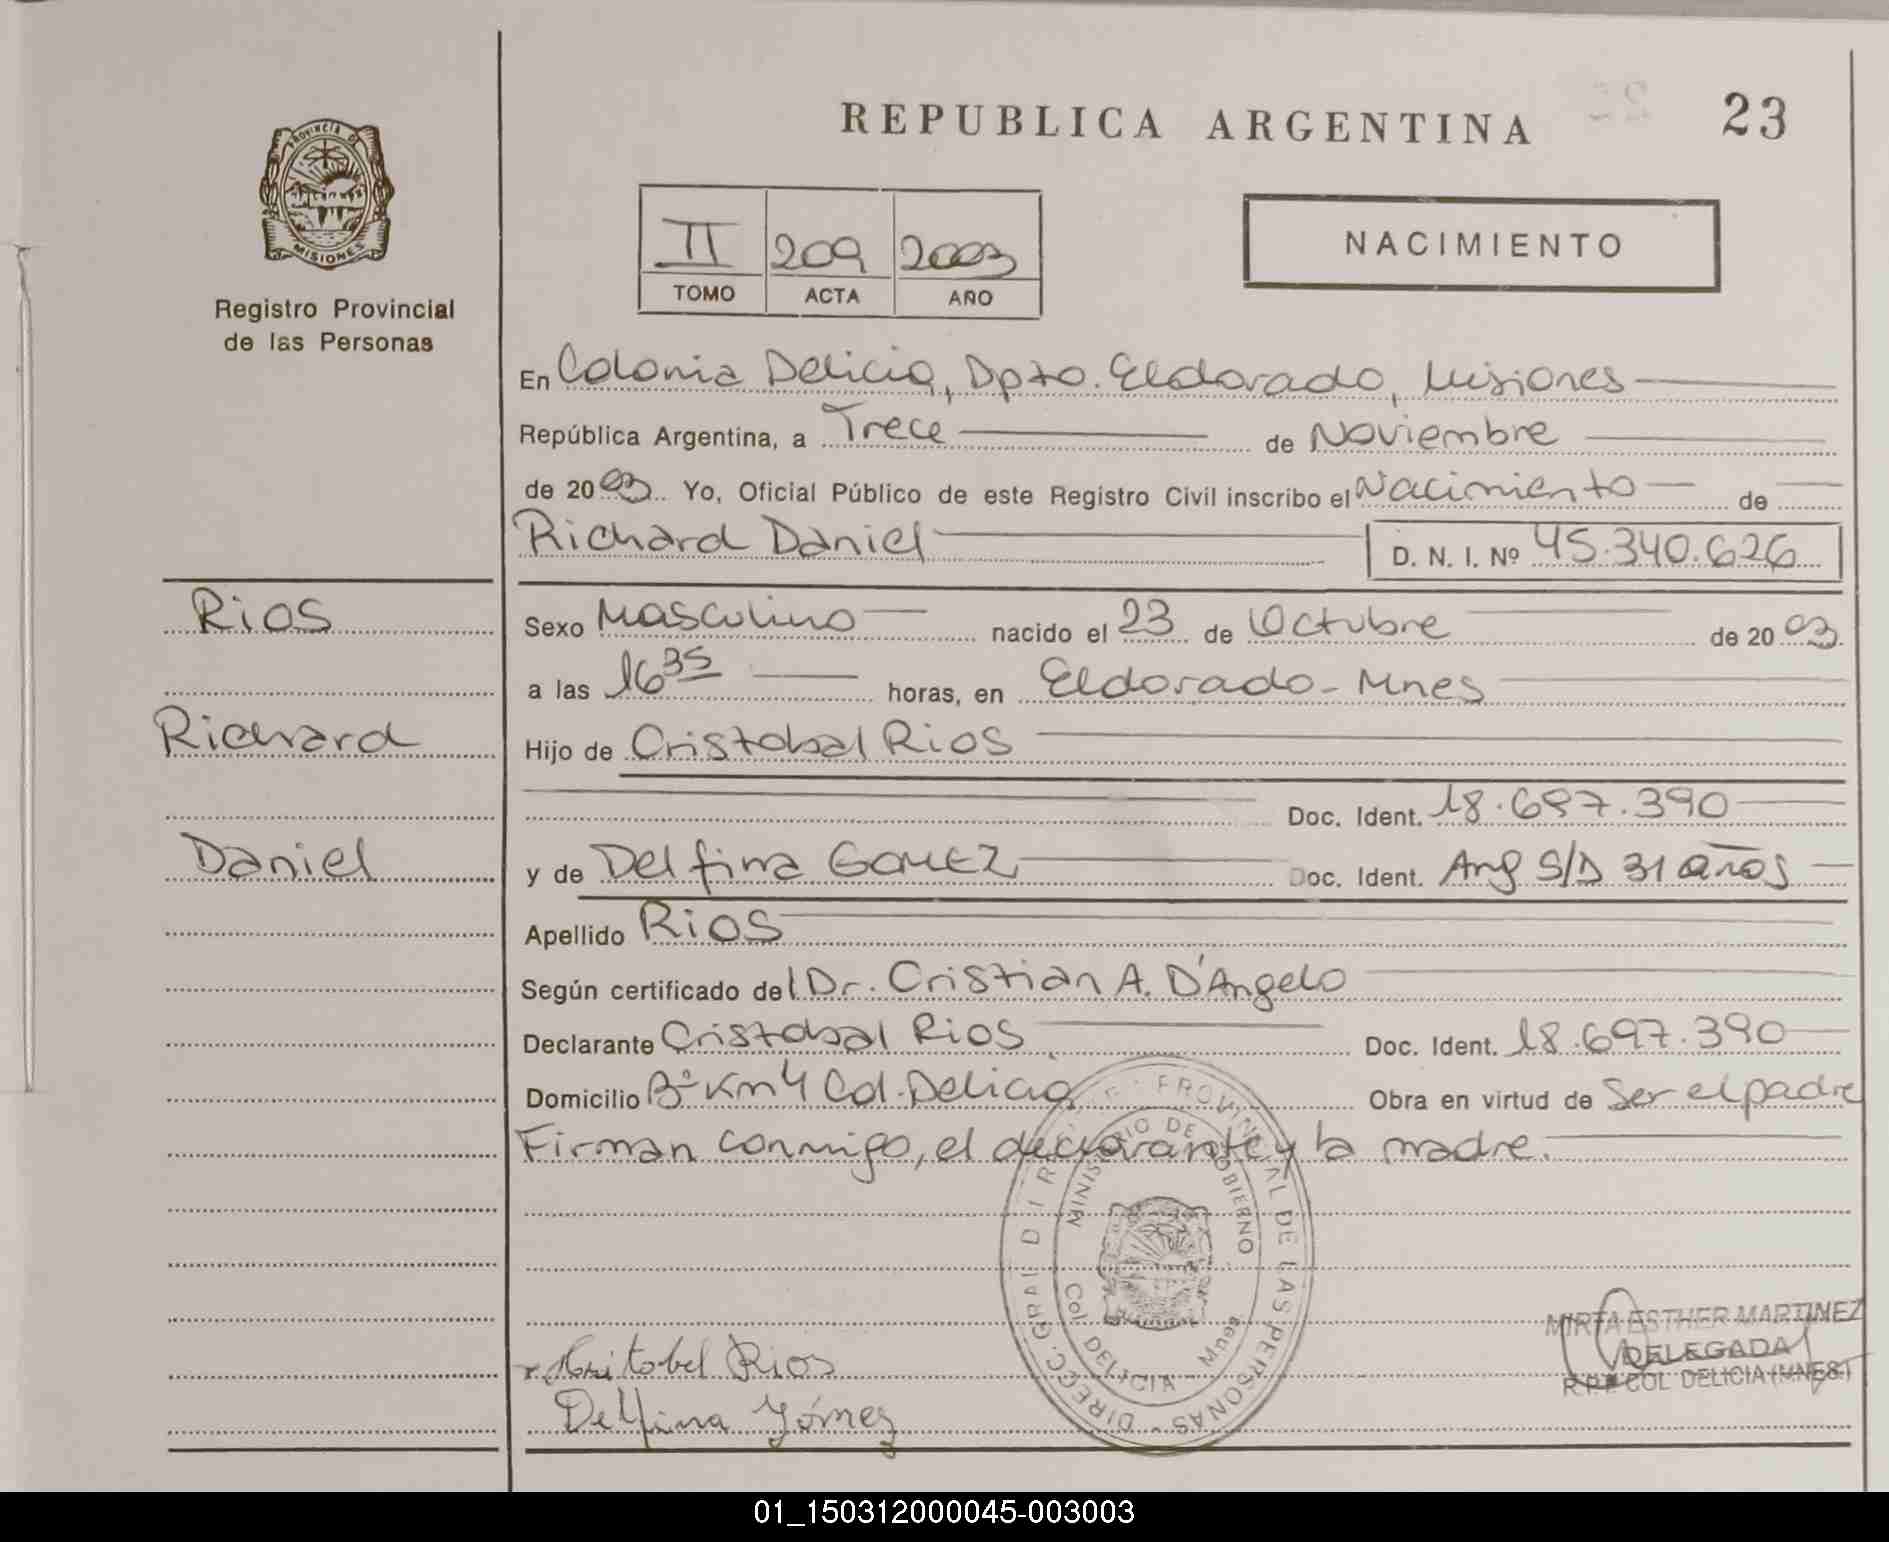 REPUBLICA ARGENTINA
23
PROVINCIA DE
MISIONES
Registro Provincial
de las Personas
II 209 2003
TOMO ACTA AÑO
NACIMIENTO
En Colonia Delicia, Dpto. Eldorado, Misiones
República Argentina, a Trece de Noviembre
de 2003 Yo, Oficial Público de este Registro Civil inscribo el Nacimiento de
Richard Daniel D. N. I. Nº 45.340.626
Rios
Richard
Daniel
Sexo Masculino nacido el 23 de Octubre de 2003
a las 16 35 horas, en Eldorado - Mnes
Hijo de Cristobal Rios
Doc. Ident. 18.697.390
y de Delfina Gomez Doc. Ident. Arg S/D 31 años
Apellido Rios
Según certificado del Dr. Cristian A. D'Angelo
Declarante Cristobal Rios Doc. Ident. 18.697.390
Domicilio Bº Km 4 Col. Delicia Obra en virtud de Ser el padre
Firman conmigo, el declarante y la madre.
DIRECC. GRAL PROVINCIAL DE LAS PERSONAS
MINISTERIO DE GOBIERNO
Col. DELICIA - Mnes
MIRTA ESTHER MARTINEZ
DELEGADA
R.P.P. COL DELICIA (MNES.)
Cristobal Rios
Delfina Gómez
01_150312000045-003003